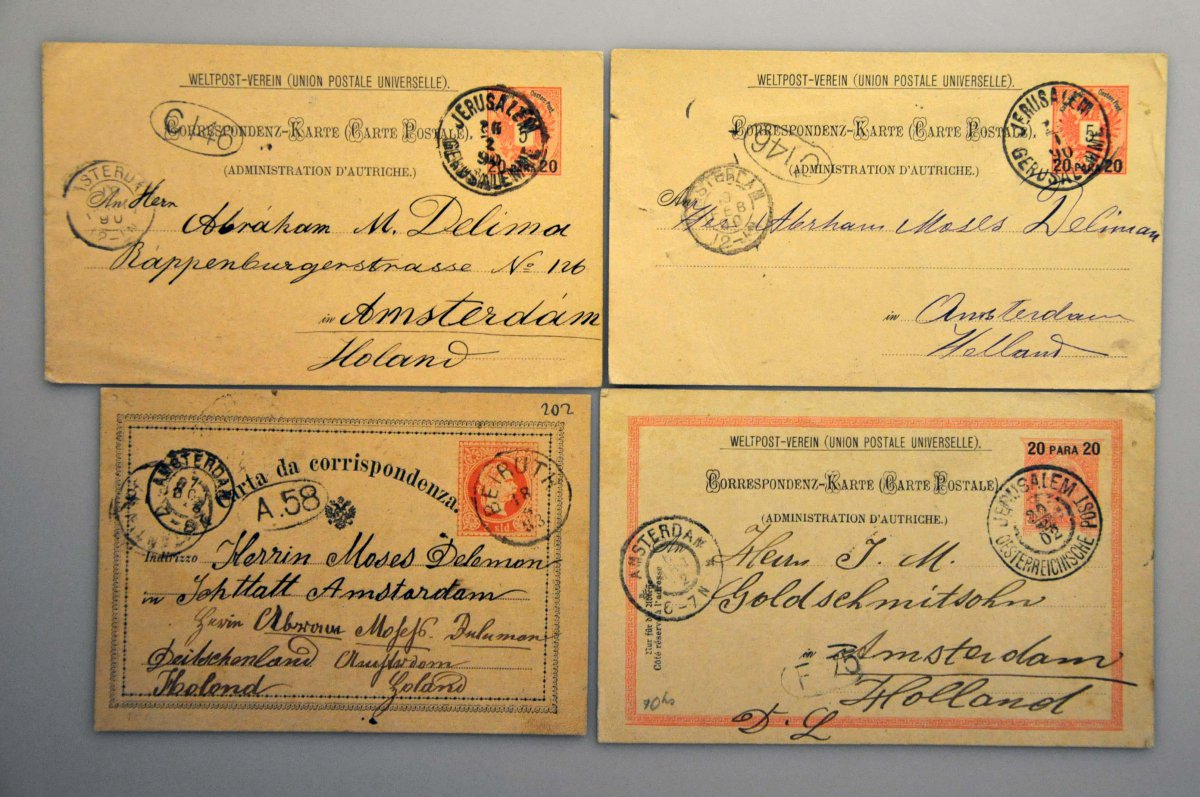 WELTPOST-VEREIN (UNION POSTALE UNIVERSELLE).
CORRESPONDENZ-KARTE (CARTE POSTALE).
(ADMINISTRATION D'AUTRICHE.)
JERUSALEM
GERUSALEMME
5
20 PARA 20
An Herr
Abráham M. Delima
Rappenburgerstrasse No 126
in Amsterdám
Holand
WELTPOST-VEREIN (UNION POSTALE UNIVERSELLE).
CORRESPONDENZ-KARTE (CARTE POSTALE).
(ADMINISTRATION D'AUTRICHE.)
JERUSALEM
GERUSALEMME
5
20 PARA 20
C 146
AMSTERDAM
An
Abrham Moses Deliman
in Amsterdam
Holland
202
Carta da corrispondenza.
AMSTERDAM
A.58
BEIRUTH
Indirizzo Herrin Moses Delemon
in Amsterdam
Herrn Abraam Moses Dulumon
Deitschenland Amsterdam
Holond Holand
WELTPOST-VEREIN (UNION POSTALE UNIVERSELLE).
20 PARA 20
CORRESPONDENZ-KARTE (CARTE POSTALE)
(ADMINISTRATION D'AUTRICHE.)
JERUSALEM
OESTERREICHISCHE POST
02
AMSTERDAM
6-7N
An
Nur für die Adresse
Côté réservé à l'adresse
Herrn J. M.
Goldschmitsohn
in Amsterdam
Holland
D. L